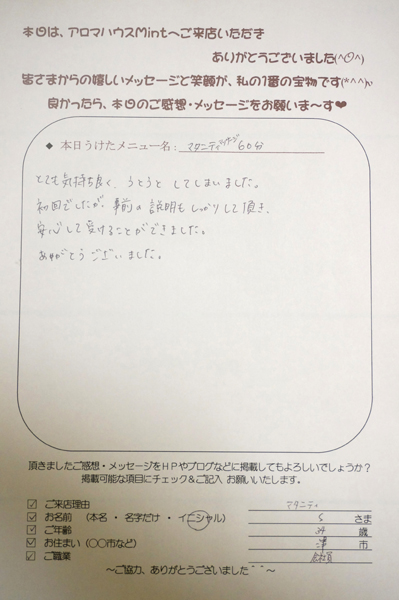 本日は、アロマハウスMintへご来店いただき
ありがとうございました(^O^)
皆さまからの嬉しいメッセージと笑顔が、私の1番の宝物です(*^^)v
良かったら、本日のご感想・メッセージをお願いま～す❤
◆ 本日うけたメニュー名: マタニティマッサージ 60分
とても気持ち良く、うとうと してしまいました。
初回でしたが、事前の説明もしっかりして頂き、
安心して受けることができました。
ありがとうございました。
頂きましたご感想・メッセージをHPやブログなどに掲載してもよろしいでしょうか?
掲載可能な項目にチェック&ご記入 お願いいたします。
☑ ご来店理由 マタニティ
☑ お名前 (本名・名字だけ・イニシャル) S さま
☑ ご年齢 34 歳
☑ お住まい (〇〇市など) 津 市
☑ ご職業
～ご協力、ありがとうございました＾＾～